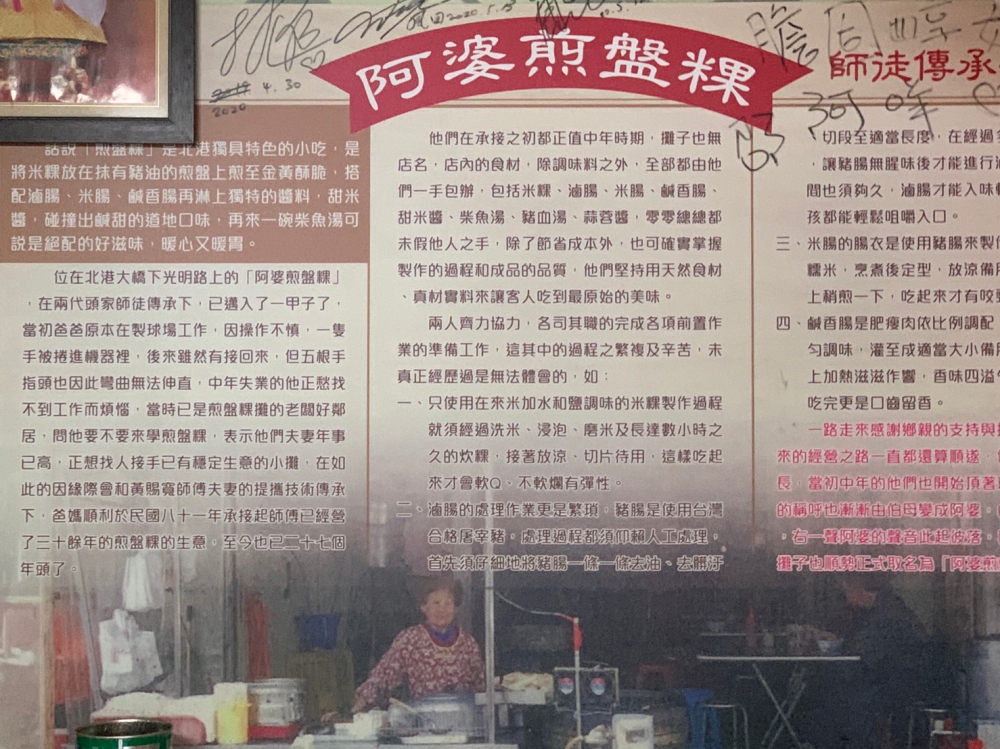 阿婆煎盤粿
師徒傳承
4.30
2020
2020.5.
阿
話說「煎盤粿」是北港獨具特色的小吃，是
將米粿放在抹有豬油的煎盤上煎至金黃酥脆，搭
配滷腸、米腸、鹹香腸再淋上獨特的醬料，甜米
醬，碰撞出鹹甜的道地口味，再來一碗柴魚湯可
說是絕配的好滋味，暖心又暖胃。
位在北港大橋下光明路上的「阿婆煎盤粿」
，在兩代頭家師徒傳承下，已邁入了一甲子了，
當初爸爸原本在製球場工作，因操作不慎，一隻
手被捲進機器裡，後來雖然有接回來，但五根手
指頭也因此彎曲無法伸直，中年失業的他正愁找
不到工作而煩惱，當時已是煎盤粿攤的老闆好鄰
居，問他要不要來學煎盤粿，表示他們夫妻年事
已高，正想找人接手已有穩定生意的小攤，在如
此的因緣際會和黃賜寬師傅夫妻的提攜技術傳承
下，爸媽順利於民國八十一年承接起師傅已經營
了三十餘年的煎盤粿的生意，至今也已二十七個
年頭了。
他們在承接之初都正值中年時期，攤子也無
店名，店內的食材，除調味料之外，全部都由他
們一手包辦，包括米粿、滷腸、米腸、鹹香腸、
甜米醬、柴魚湯、豬血湯、蒜蓉醬，零零總總都
未假他人之手，除了節省成本外，也可確實掌握
製作的過程和成品的品質，他們堅持用天然食材
、真材實料來讓客人吃到最原始的美味。
兩人齊力協力，各司其職的完成各項前置作
業的準備工作，這其中的過程之繁複及辛苦，未
真正經歷過是無法體會的，如：
一、只使用在來米加水和鹽調味的米粿製作過程
就須經過洗米、浸泡、磨米及長達數小時之
久的炊粿，接著放涼、切片待用，這樣吃起
來才會軟Q、不軟爛有彈性。
二、滷腸的處理作業更是繁瑣，豬腸是使用台灣
合格屠宰豬，處理過程都須仰賴人工處理，
首先須仔細地將豬腸一條一條去油、去髒汙
切段至適當長度，在經過
讓豬腸無腥味後才能進行
間也須夠久，滷腸才能入味
孩都能輕鬆咀嚼入口。
三、米腸的腸衣是使用豬腸來製
糯米，烹煮後定型，放涼備
上稍煎一下，吃起來才有咬
四、鹹香腸是肥瘦肉依比例調配
勻調味，灌至成適當大小備
上加熱滋滋作響，香味四溢
吃完更是口齒留香。
一路走來感謝鄉親的支持與
來的經營之路一直都還算順遂，
長，當初中年的他們也開始頂著
的稱呼也漸漸由伯母變成阿婆，
，右一聲阿婆的聲音此起彼落，
攤子也順勢正式取名為「阿婆煎